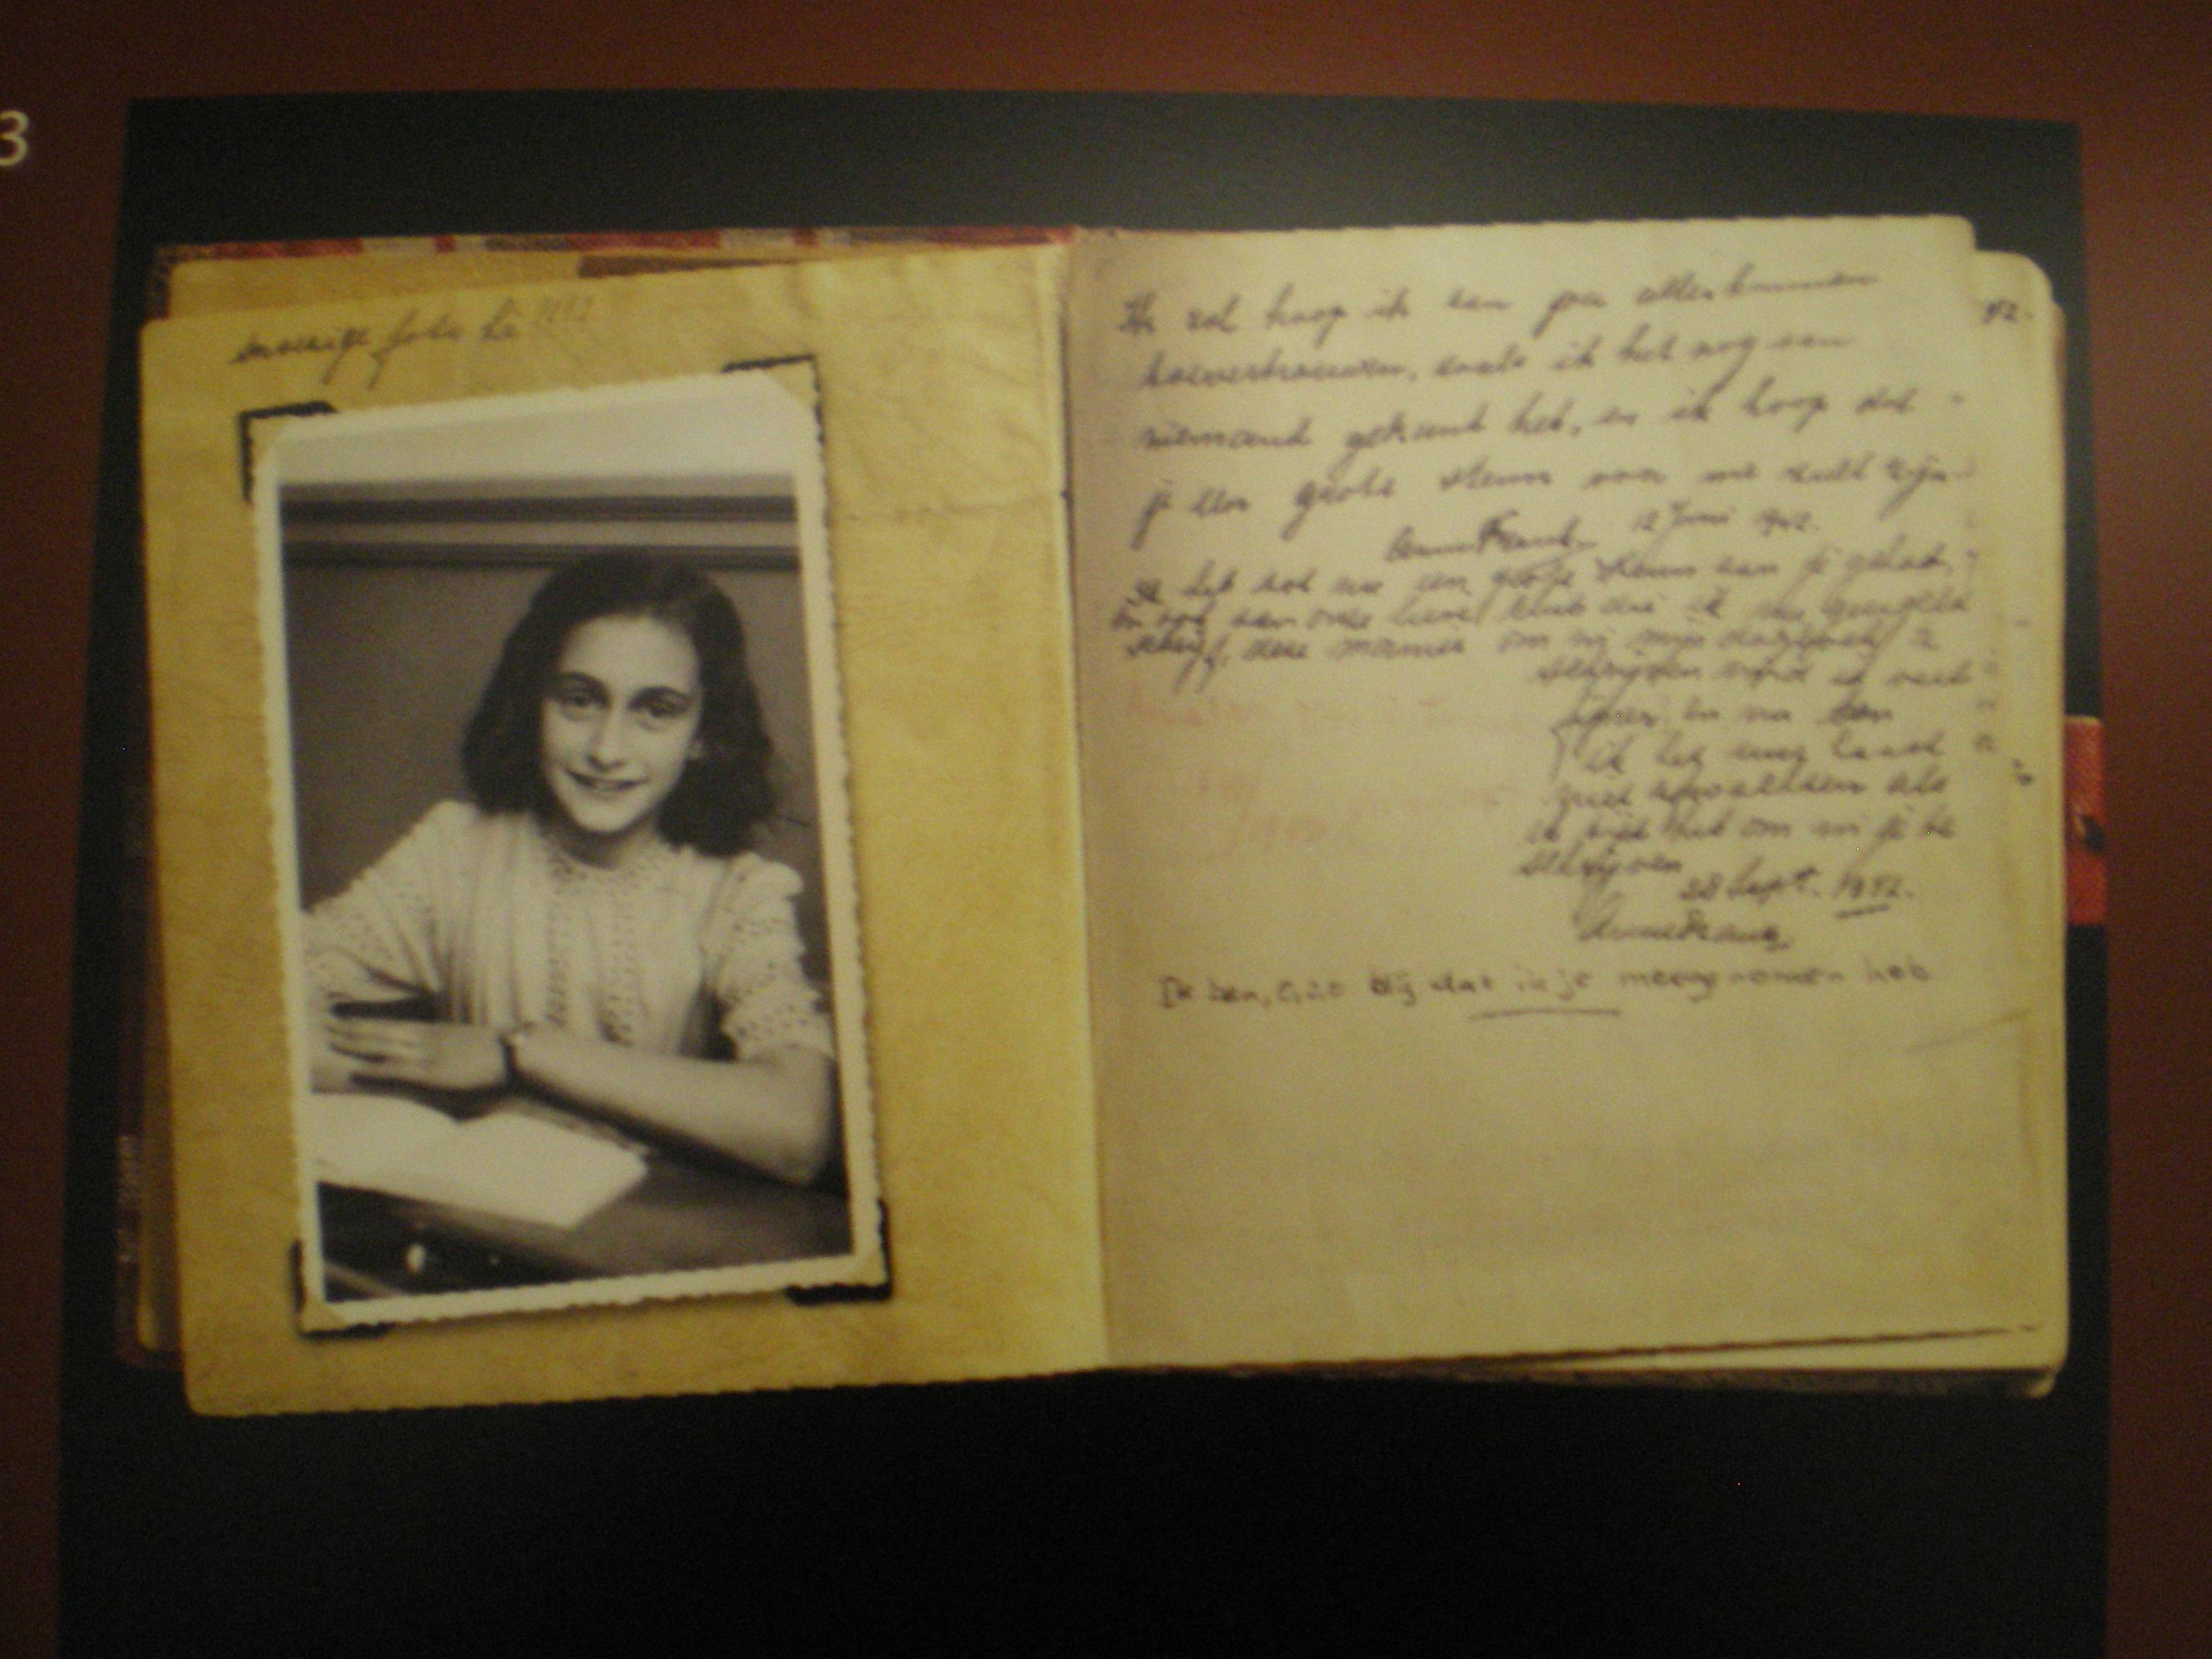 3
snoezige foto hè !!!!
Ik zal hoop ik aan jou alles kunnen
toevertrouwen, zoals ik het nog aan
niemand gekund heb, en ik hoop dat
je een grote steun voor me zult zijn.
Anne Frank. 12 Juni 1942.
Ik heb tot nu een grote steun aan je gehad,
en ook aan onze lieve club die ik nu geregeld
schrijf, deze manier om in mijn dagboek te
schrijven vind ik veel
fijner en nu kan
ik het uur haast
niet afwachten als
ik tijd heb om in je te
schrijven
28 Sept. 1942.
Anne Frank
Ik ben, o, zo blij dat ik je meegenomen heb
42.